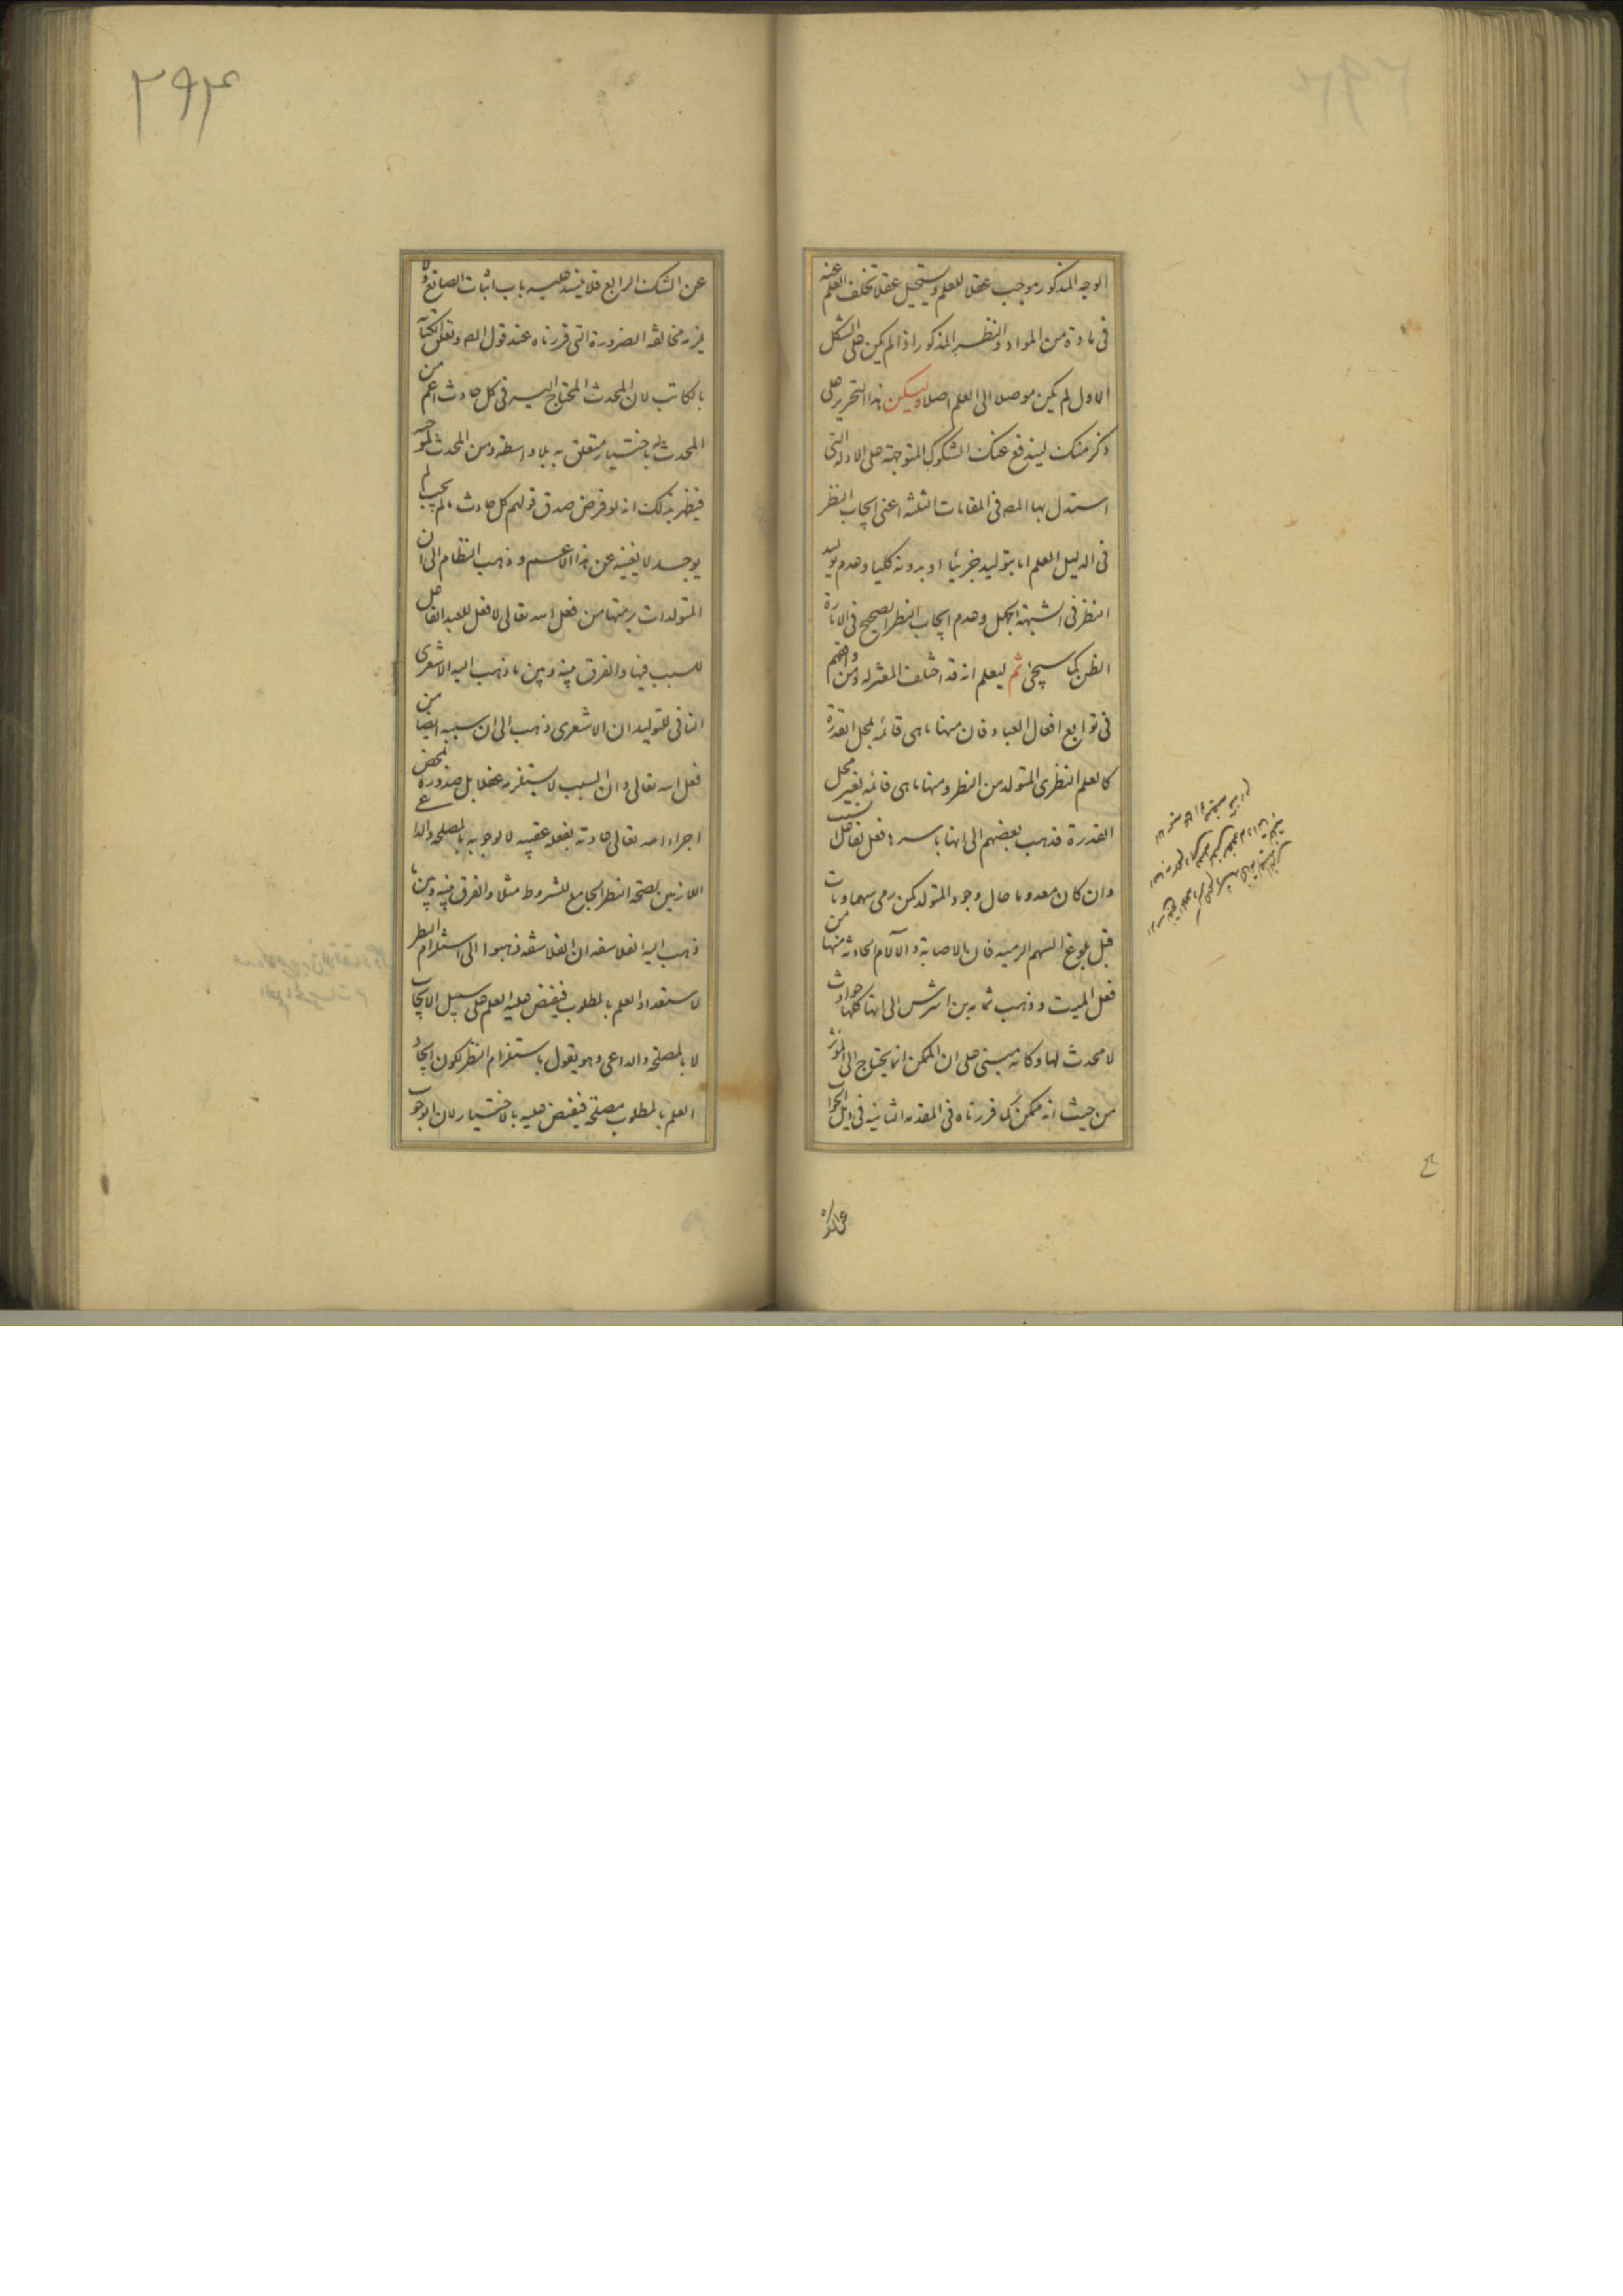 الوجه المذكور موجب عقلا للعلم ويستحيل عقلا تخلف العلم عنه
فى مادة من المواد والنظر المذكور اذا لم يكن على الشكل
الاول لم يكن موصلا الى العلم اصلا وليكن هذا التحرير على
ذكر منك ليندفع عنك الشكوك المتوجهة على الادلة التى
استدل بها المص فى المقامات الثلثة اعنى ايجاب النظر
فى الدليل العلم اما بتوليد جزئيا او بدونه كليا وعدم توليد
النظر فى الشبهة الجهل وعدم ايجاب النظر الصحيح فى الامارة
الظن كما سيجئ ثم ليعلم انه قد اختلف المعتزلة ومن وافقهم
فى توابع افعال العباد فان منها ما هى قائمة بمحل القدرة
كالعلم النظرى المتولد من النظر ومنها ما هى قائمة بغير محل
القدرة فذهب بعضهم الى انها باسرها فعل لفاعل السبب
وان كان معدوما حال وجود المتولد كمن رمى سهما ومات
قبل بلوغ السهم الرمية فان الاصابة والآلام الحادثة منها من
فعل الميت وذهب ثمامة بن اشرس الى انها كلها حوادث
لا محدث لها وكانه مبنى على ان الممكن انما يحتاج الى المؤثر
من حيث انه ممكن كما قررناه فى المقدمة الثانية فى ذيل الجواب
عن الشك
۲۹۴
عن الشك الرابع فلا ينسد عليه باب اثبات الصانع ولا
يلزمه مخالفة الضرورة التى قررناه عند قول المص وتعلق الكتابة
بالكاتب لان المحدث المحتاج اليه فى كل حادث اعم من
المحدث له باختيار متعلق به بلا واسطة ومن المحدث لموجبه
فيظهر بذلك انه لو فرض صدق قولهم كل حادث ما لم يجب لم
يوجد لا يغنيه عن هذا الاعم وذهب النظام الى ان
المتولدات برمتها من فعل الله تعالى لا فعل للعبد الفاعل
للسبب فيها والفرق بينه وبين ما ذهب اليه الاشعرى
النافى للتوليد ان الاشعرى ذهب الى ان سببه ايضا من
فعل الله تعالى وان السبب لا يستلزمه عقلا بل صدوره بمحض
اجراء الله تعالى عادته بفعله عقيبه لا لوجوبه بالمصلحة والداعى
اللازمين لصحة النظر الجامع للشروط مثلا والفرق بينه وبين ما
ذهب اليه الفلاسفة ان الفلاسفة ذهبوا الى استلزام النظر
لاستعداد العلم بالمطلوب فيفيض عليه العلم على سبيل الايجاب
لا بالمصلحة والداعى وهو يقول باستلزام النظر لكون ايجاد
العلم بالمطلوب مصلحة فيفيض عليه بالاختيار لان الوجوب